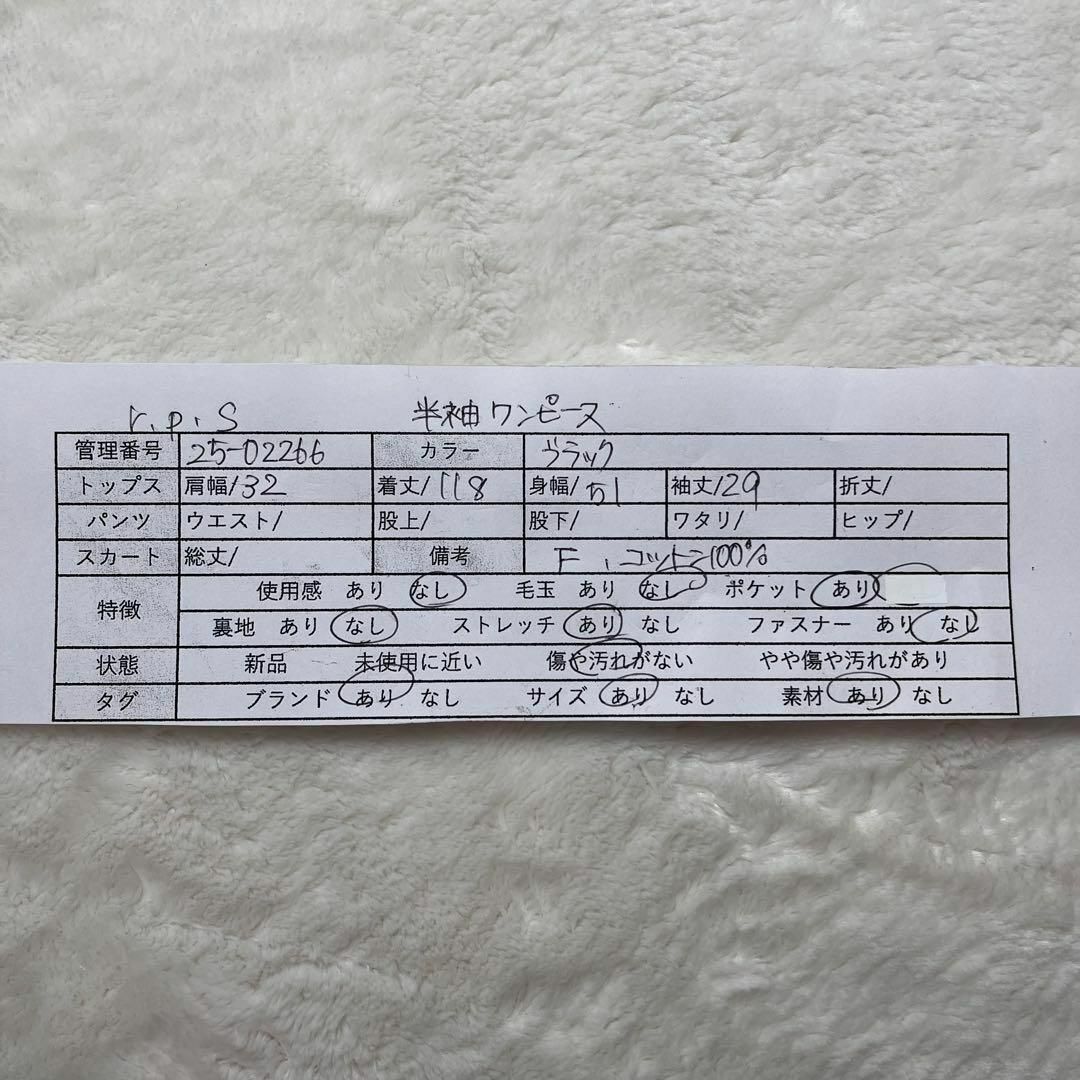 r.p.s 半袖ワンピース
管理番号 25-02266 カラー ブラック
トップス 肩幅/32 着丈/118 身幅/51 袖丈/29 折丈/
パンツ ウエスト/ 股上/ 股下/ ワタリ/ ヒップ/
スカート 総丈/ 備考 F、コットン100%
特徴 使用感 あり なし 毛玉 あり なし ポケット あり
裏地 あり なし ストレッチ あり なし ファスナー あり なし
状態 新品 未使用に近い 傷や汚れがない やや傷や汚れがあり
タグ ブランド あり なし サイズ あり なし 素材 あり なし